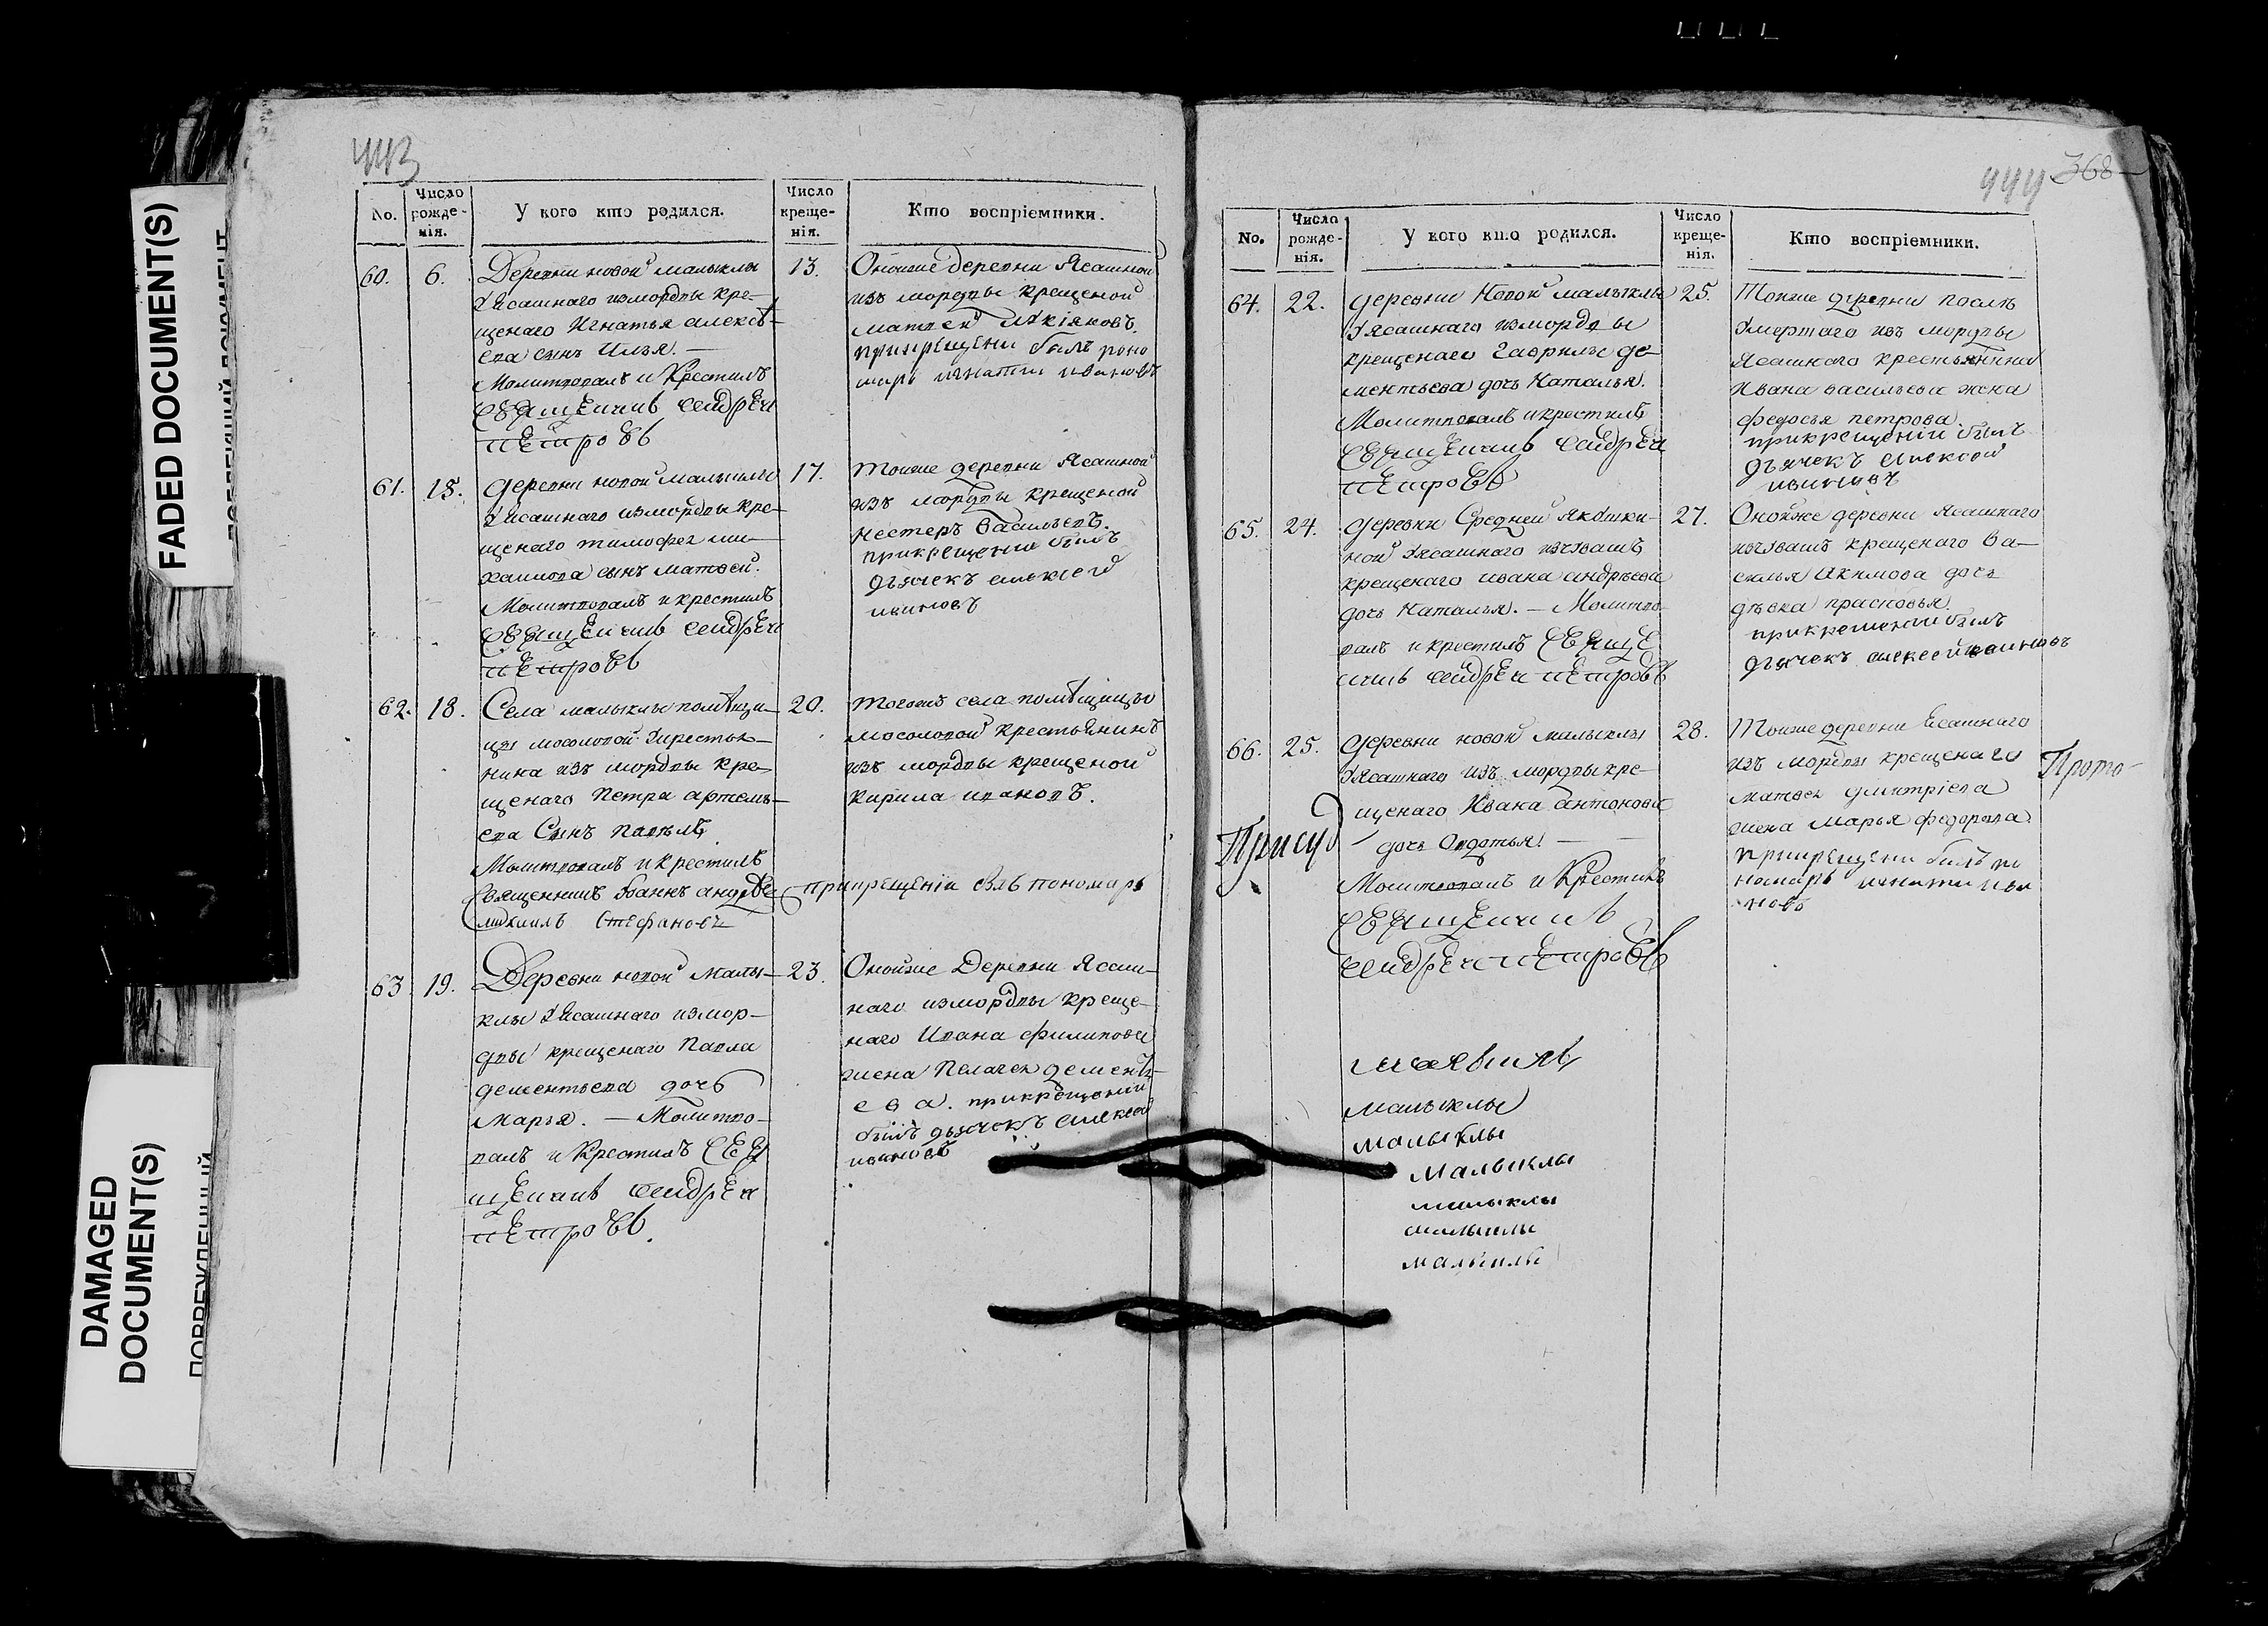 443
No.
Число рожде-нія.
У кого кто родился.
Число креще-нія.
Кто воспріемники.
60. 6. Деревни новой малыклы
Уясашнаго измордвы кре-
щенаго Игнатья алексѣ-
ева сынъ Илья. —
Молитвовалъ и Крестилъ
священникъ андрей
петровъ
13. Оноиже деревни Ясашной
изъ мордвы крещеной
матвей
прикрещени былъ поно
марь игнатии ивановъ
61. 15. деревни новой малыклы
Уясашнаго измордвы кре-
щенаго тимофея ми-
хаилова сынъ матвей.
Молитвовалъ и крестилъ
священникъ андрей
петровъ
17. тоиже деревни Ясашной
изъ мордвы крещеной
нестеръ васильевъ.
прикрещении былъ
дьячекъ алексей
ивановъ
62. 18. Села малыклы помѣщи-
цы мосоловой Укрестья-
нина изъ мордвы кре-
щенаго Петра артемь-
ева Сынъ павелъ
Молитвовалъ и крестилъ
священникъ Іоаннъ андрѣе
прикрещеніи былъ пономарь
михаилъ Стефановъ
20. тогожъ села помѣщицы
мосоловой Крестьянинъ
изъ мордвы крещеной
кирила ивановъ.
63 19. Деревни новой малы-
клы Уясашнаго измор-
двы крещенаго Павла
дементьева дочь
Марья. — Молитво-
валъ и Крестилъ свя
щенникъ андрей
петровъ.
23. Онойже Деревни Ясаш-
наго измордвы креще-
наго Ивана филипова
жена Пелагея дементь-
ева. прикрещении
былъ дьячекъ алексей
ивановъ
FADED DOCUMENT(S)
DAMAGED
DOCUMENT(S)
444 368
No.
Число рожде-нія.
У кого кто родился.
Число креще-нія.
Кто воспріемники.
64. 22. деревни Новой малыклы
Уясашнаго измордвы
крещенаго Гаврилы де-
ментьева дочь Наталья.
Молитвовалъ икрестилъ
священникъ андрей
петровъ
25. Тоиже деревни послѣ
Умертаго изъ мордвы
Ясашнаго крестьянина
Ивана васильева жена
федосья петрова.
прикрещении былъ
дьячекъ алексей
ивановъ
65. 24. деревни Средней Якушки-
ной Уясашнаго изчувашъ
крещенаго ивана андрѣева
дочь Наталья. — Молитво-
валъ икрестилъ свяще
нникъ андрей петровъ
27. Онойже деревни Ясашнаго
изчувашъ крещенаго ва-
силья Акимова дочь
дѣвка прасковья.
прикрещении былъ
дьячекъ алексей ивановъ
66. 25. деревни новой малыклы
Уясашнаго изъ мордвы кре-
щенаго Ивана антонова
дочь Овдотья. —
Молитвовалъ и Крестилъ
священникъ
андрей петровъ
28. Тоиже деревни Ясашнаго
изъ мордвы крещенаго
матвея дмитріева
жена Марья федорова
прикрещени былъ по
номарь игнатии ива
новъ
Прису
Прото-
малыклы
малыклы
малыклы
малыклы
малыклы
малыклы